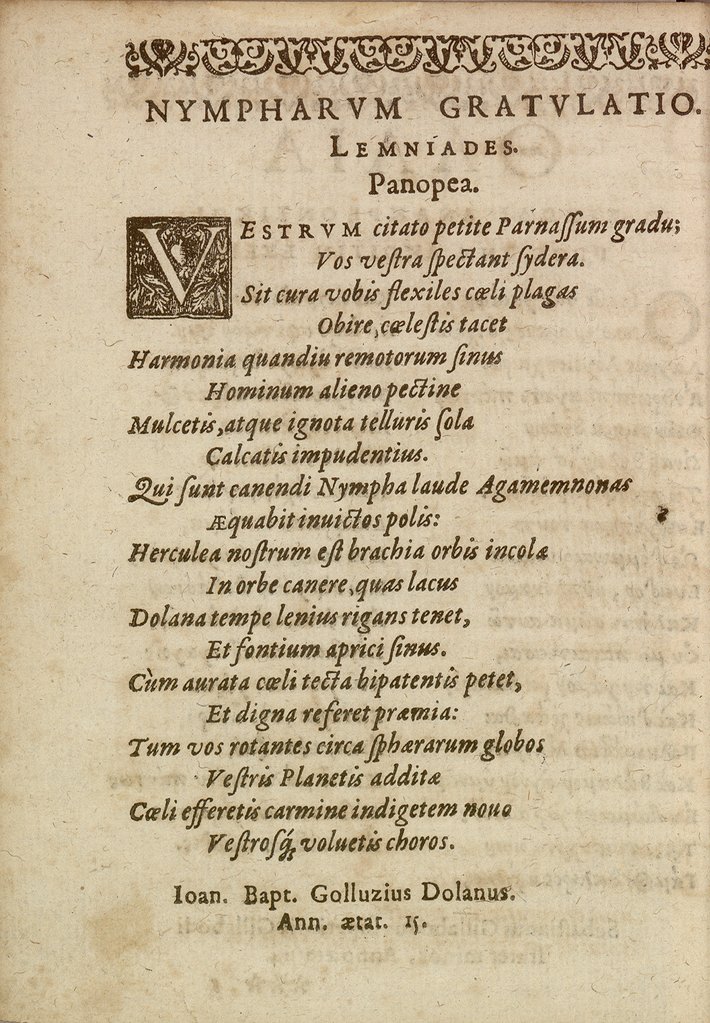 NYMPHARVM GRATVLATIO.
LEMNIADES.
Panopea.
VESTRVM citato petite Parnaſſum gradu;
Vos veſtra ſpectant ſydera.
Sit cura vobis flexiles cœli plagas
Obire, cœleſtis tacet
Harmonia quandiu remotorum ſinus
Hominum alieno pectine
Mulcetis, atque ignota telluris ſola
Calcatis impudentius.
Qui ſunt canendi Nympha laude Agamemnonas
Æquabit inuictos polis:
Herculea noſtrum eſt brachia orbis incolæ
In orbe canere, quas lacus
Dolana tempe lenius rigans tenet,
Et fontium aprici ſinus.
Cùm aurata cœli tecta bipatentis petet,
Et digna referet præmia:
Tum vos rotantes circa ſphærarum globos
Veſtris Planetis additæ
Cœli efferetis carmine indigetem nouo
Veſtroſq́; voluetis choros.
Ioan. Bapt. Golluzius Dolanus.
Ann. ætat. 15.